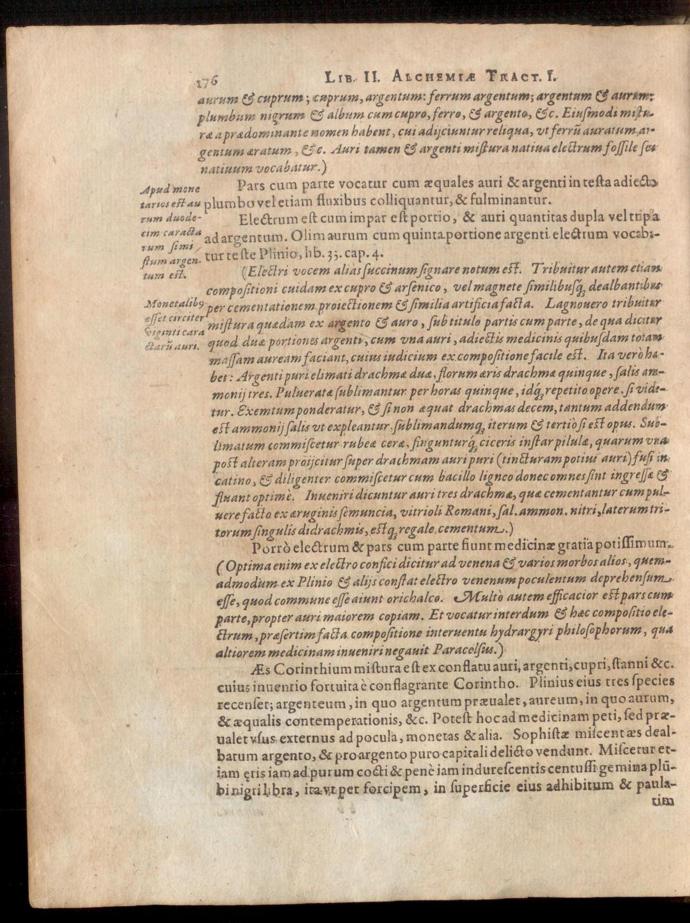 176
LIB. II. ALCHEMIÆ TRACT. I.
aurum & cuprum; cuprum, argentum: ferrum argentum; argentum & aurum:
plumbum nigrum & album cum cupro, ferro, & argento, &c. Eiusmodi mistu-
ræ a prædominante nomen habent, cui adijciuntur reliqua, vt ferrū auratum, ar-
gentum æratum, &c. Auri tamen & argenti mistura natiua electrum fossile seu
natiuum vocabatur.)
Pars cum parte vocatur cum æquales auri & argenti in testa adiecto
plumbo vel etiam fluxibus colliquantur, & fulminantur.
Electrum est cum impar est portio, & auri quantitas dupla vel tripla
ad argentum. Olim aurum cum quinta portione argenti electrum vocaba-
tur teste Plinio, lib. 33. cap. 4.
Apud mone
tarios est au
rum duode-
cim caracta
rum simi
stum argen-
tum est.
Monetalibꝰ
esset circiter
viginti cara
ctarū auri.
(Electri vocem alias succinum signare notum est. Tribuitur autem etiam
compositioni cuidam ex cupro & arsenico, vel magnete similibusq́; dealbantibus
per cementationem proiectionem & similia artificia facta. Lagnouero tribuitur
mistura quædam ex argento & auro, sub titulo partis cum parte, de qua dicitur
quod duæ portiones argenti, cum vna auri, adiectis medicinis quibusdam totam
massam auream faciant, cuius iudicium ex compositione facile est. Ita verò ha-
bet: Argenti puri elimati drachmæ duæ, florum æris drachmæ quinque, salis am-
monij tres. Pulueratæ sublimantur per horas quinque, idq́; repetito opere, si vide-
tur. Exemtum ponderatur, & si non æquat drachmas decem, tantum addendum
est ammonij salis vt expleantur. sublimandumq́; iterum & tertiò si est opus. Sub-
limatum commiscetur rubeæ ceræ, finguntur q́; ciceris instar pilulæ, quarum vna
post alteram proijcitur super drachmam auri puri (tincturam potius auri) fusi in
catino, & diligenter commiscetur cum bacillo ligneo donec omnes sint ingressæ &
fluant optimè. Inueniri dicuntur auri tres drachmæ, quæ cementantur cum pul-
uere facto ex æruginis semuncia, vitrioli Romani, sal. ammon. nitri, laterum tri-
torum singulis didrachmis, estq́; regale cementum.)
Porrò electrum & pars cum parte fiunt medicinæ gratia potissimum.
(Optima enim ex electro confici dicitur ad venena & varios morbos alios, quem-
admodum ex Plinio & alijs constat electro venenum poculentum deprehensum
esse, quod commune esse aiunt orichalco. Multò autem efficacior est pars cum
parte, propter auri maiorem copiam. Et vocatur interdum & hæc compositio ele-
ctrum, præsertim facta compositione interuentu hydrargyri philosophorum, qua
altiorem medicinam inueniri negauit Paracelsus.)
Æs Corinthium mistura est ex conflatu auri, argenti, cupri, stanni &c.
cuius inuentio fortuita è conflagrante Corintho. Plinius eius tres species
recenset; argenteum, in quo argentum præualet, aureum, in quo aurum,
& æqualis contemperationis, &c. Potest hoc ad medicinam peti, sed præ-
ualet vsus externus ad pocula, monetas & alia. Sophistæ miscent æs deal-
batum argento, & pro argento puro capitali delicto vendunt. Miscetur et-
iam ęris iam ad purum cocti & penè iam indurescentis centussi gemina plū-
bi nigri libra, ita vt per forcipem, in superficie eius adhibitum & paula-
tim